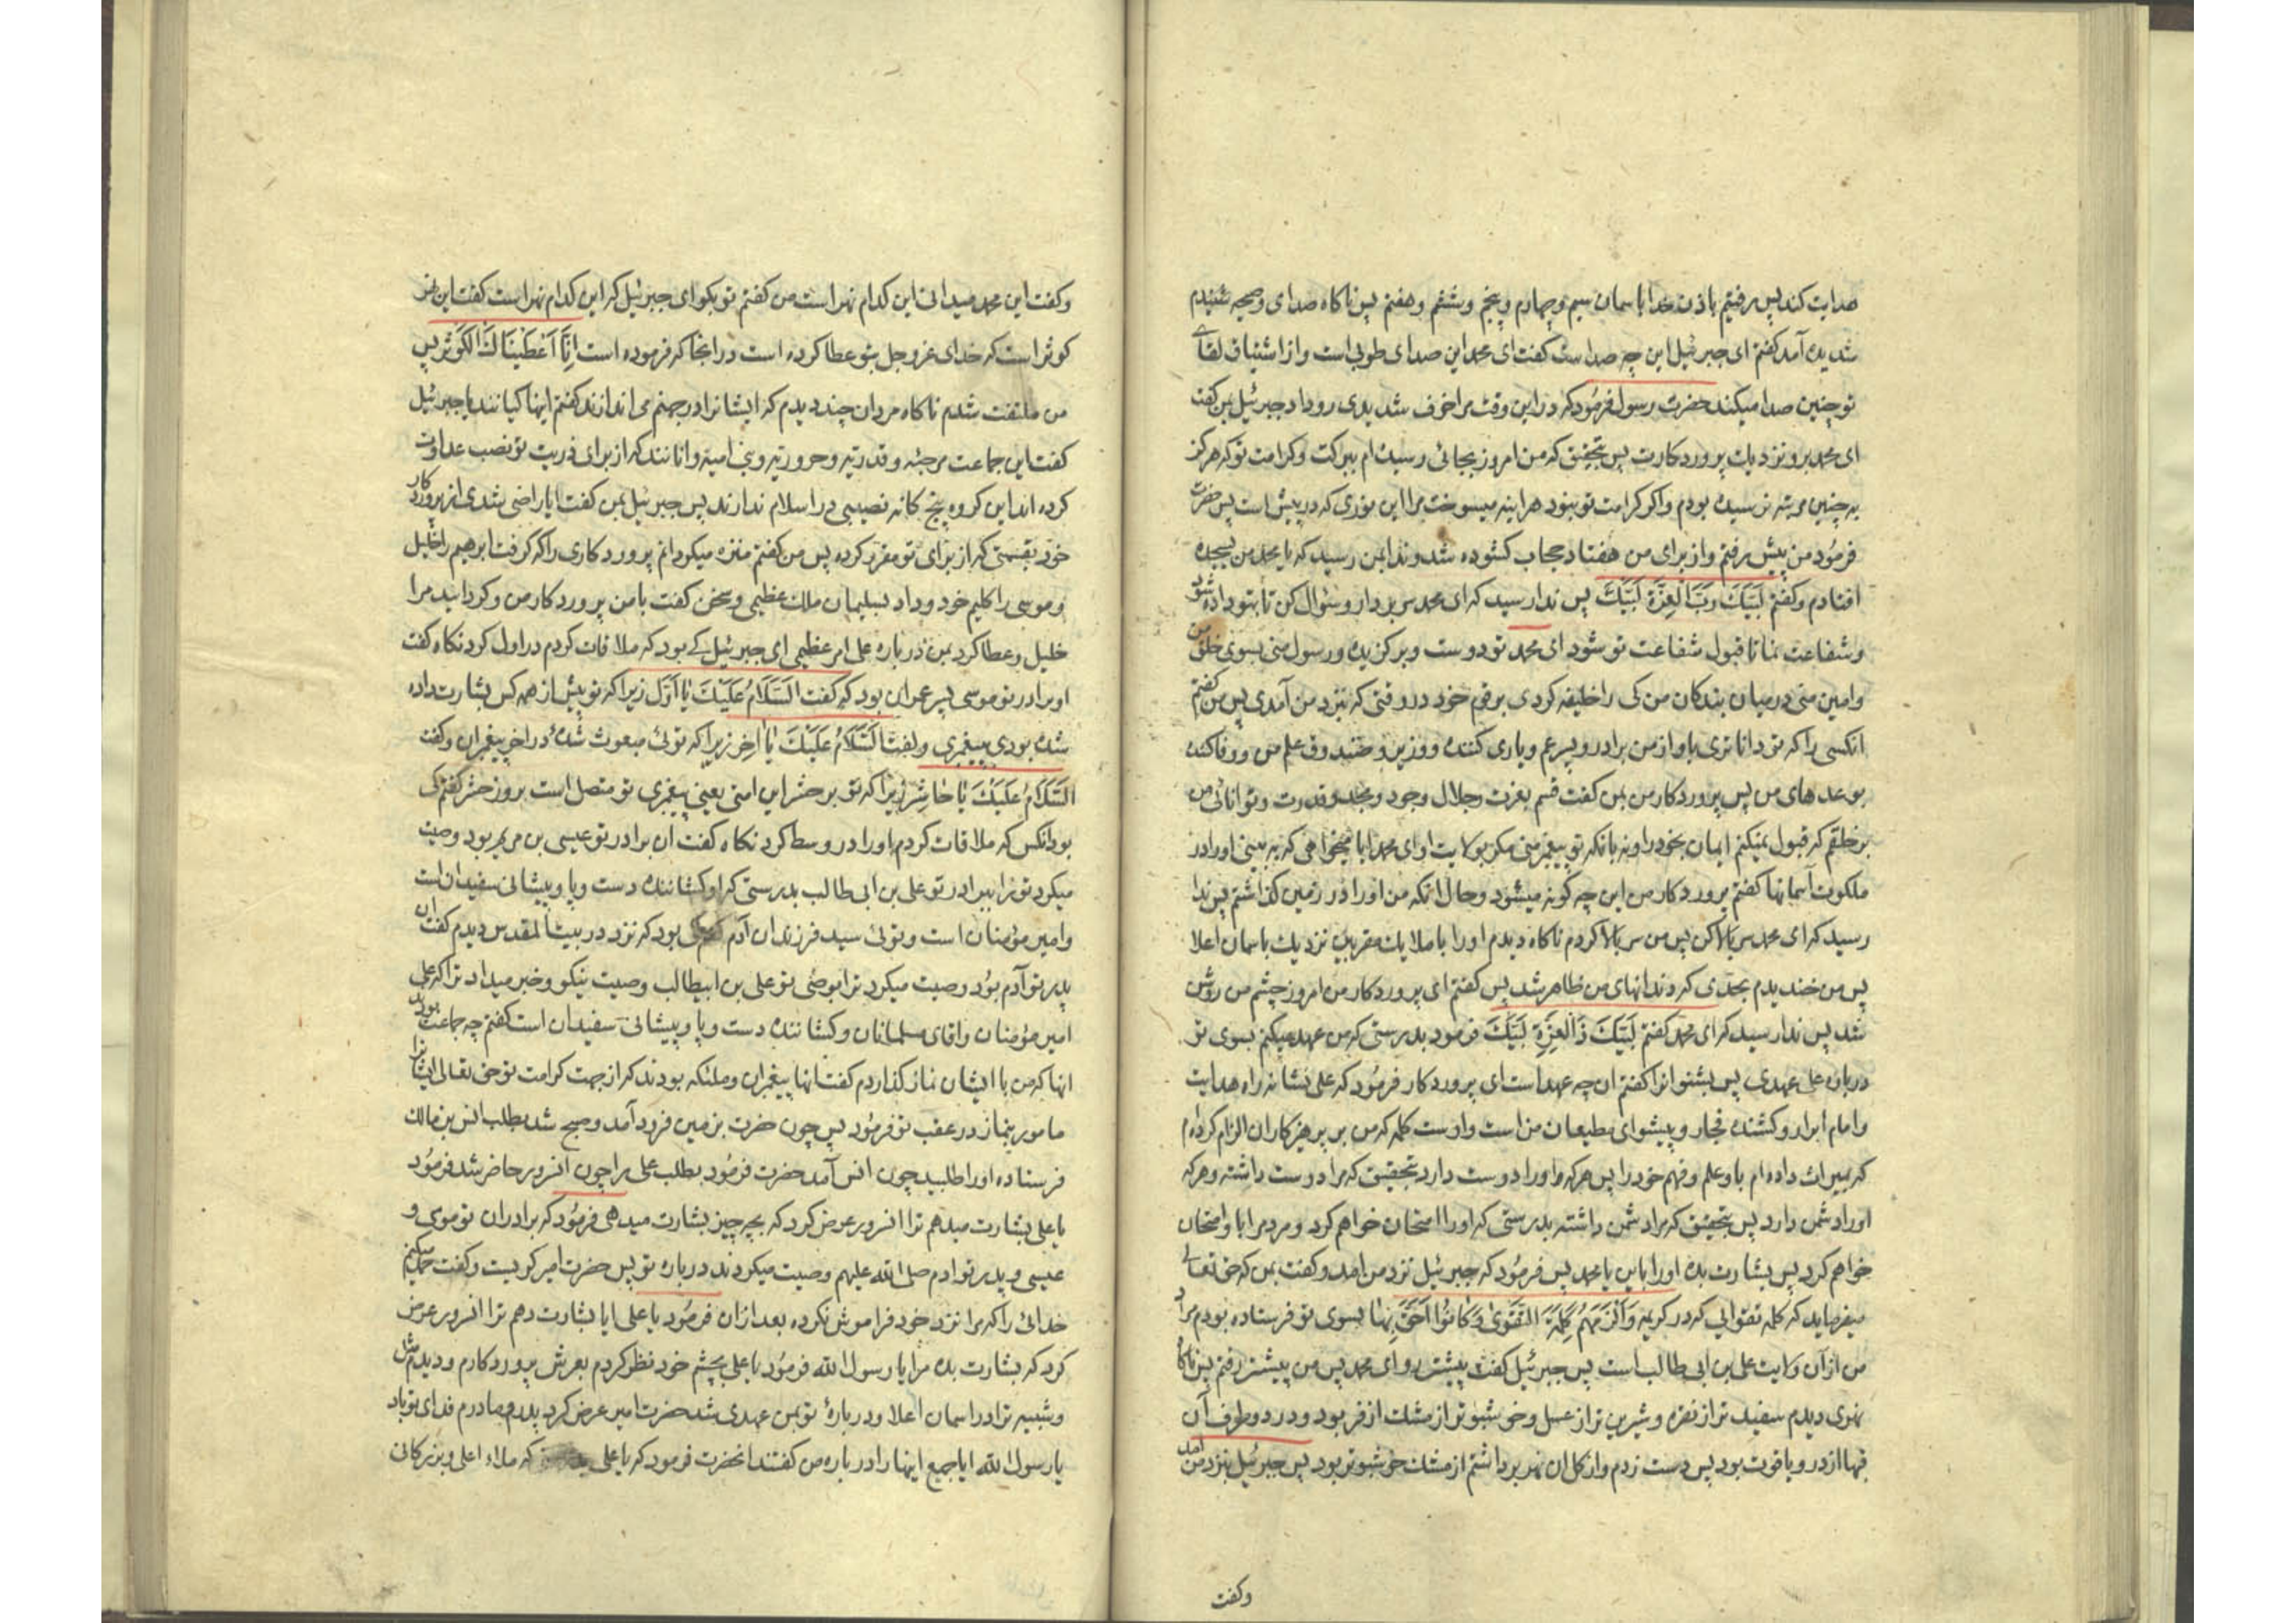 هدایت کند پس رفتیم باذن خدا باسمان سیم و چهارم و پنجم و ششم و هفتم پس ناکاه صدای و صیحه شنیدم
شدیده آمد کفتم ای جبرئیل این چه صداست کفت ای محمد این صدای طوبی است و از اشتیاق لقای
تو چنین صدا میکند حضرت رسول فرمود که در این وقت مرا خوف شدیدی رو داد جبرئیل بمن کفت
ای محمد برو نزدیک پرورد کارت پس بتحقیق که من امروز بجائی رسیده ام ببرکت و کرامت تو که هرکز
به چنین مرتبه نرسیده بودم و اکر کرامت تو نبود هراینه میسوخت مرا این نوری که در پیش است پس حضرت
فرمود من پیش رفتم و از برای من هفتاد حجاب کشوده شد و ندا بمن رسید که یا محمد من بسجده
افتادم و کفتم لَبَّیْکَ رَبَّ الْعِزَّةِ لَبَّیْکَ پس ندا رسید که ای محمد سر بردار و سؤال کن تا بتو داده شود
و شفاعت نما تا قبول شفاعت تو شود ای محمد تو دوست و برکزیده و رسول منی بسوی خلق من
و امین منی درمیان بندکان من کی را خلیفه کردی بر قوم خود در وقتی که نزد من آمدی پس من کفتم
انکسی را که تو داناتری باو از من برادر و پسر عم و یاری کننده و وزیر و صندوق علم من و وفا کننده
بوعدهای من پس پرورد کار من بمن کفت قسم بعزت و جلال وجود و مجد و قدرت و توانائی من
بر خلقم که قبول نمیکنم ایمان بخود را و نه بانکه تو پیغمبر منی مکر بولایت او ای محمد ایا میخواهی که به بینی او را در
ملکوت آسمانها کفتم پرورد کار من این چه کونه میشود و حال انکه من او را در زمین کذاشتم پس ندا
رسید که ای محمد سر بالا کن پس من سر بالا کردم ناکاه دیدم او را با ملایک مقربین نزدیک باسمان اعلا
پس من خندیدم بحدّی که دندانهای من ظاهر شد پس کفتم ای پرورد کار من امروز چشم من روشن
شد پس ندا رسید که ای محمد کفتم لَبَّیْکَ ذَا الْعِزَّةِ لَبَّیْکَ فرمود بدرستی که من عهد میکنم بسوی تو
درباره علی عهدی پس بشنو انرا کفتم ان چه عهد است ای پرورد کار فرمود که علی نشانه راه هدایت
و امام ابرار و کشنده فجار و پیشوای مطیعان من است و اوست کلمه که من بر پرهیزکاران الزام کرده ام
که بمیراث داده ام باو علم و فهم خود را پس هرکه او را دوست دارد بتحقیق که مرا دوست داشته و هرکه
او را دشمن دارد پس بتحقیق که مرا دشمن داشته بدرستی که او را امتحان خواهم کرد و مردم را باو امتحان
خواهم کرد پس بشارت بده او را باین یا محمد پس فرمود که جبرئیل نزد من امد و کفت بمن که حق تعالی
میفرماید که کلمه تقوائی که در کریمه وَاَلْزَمَهُمْ کَلِمَةَ التَّقْوٰی وَکَانُوا اَحَقَّ بِهَا بسوی تو فرستاده بودم مراد
من از آن ولایت علی بن ابی طالب است پس جبرئیل کفت پیشتر رو ای محمد پس من پیشتر رفتم پس ناکاه
نهری دیدم سفید تر از نقره و شیرین تر از عسل و خوشبو تر از مشک اذفر بود و در دو طرف آن
قبها از در و یاقوت بود پس دست زدم و از کل ان نهر برداشتم از مشک خوشبوتر بود پس جبرئیل بنزد من امد
وکفت
وکفت این محمد میدانی این کدام نهر است من کفتم تو بکو ای جبرئیل که این کدام نهر است کفت این نهر
کوثر است که خدای عز و جل بتو عطا کرده است در انجا که فرموده است اِنَّا اَعْطَیْنَاکَ الْکَوْثَرَ پس
من ملتفت شدم ناکاه مردان چند دیدم که ایشانرا در جهنم می اندازند کفتم اینها کیانند یا جبرئیل
کفت این جماعت مرجئه و قدریّه و حروریّه و بنی امیه و انانند که از برای ذریت تو نصب عداوت
کرده اند این کروه پنج کانه نصیبی در اسلام ندارند پس جبرئیل بمن کفت ایا راضی شدی از پرورد کار
خود بقسمتی که از برای تو مقرر کرده پس من کفتم منزه میکردانم پرورد کاری را که کرفت ابرهیم را خلیل
و موسی را کلیم خود و داد بسلیمان ملک عظیمی و سخن کفت با من پرورد کار من و کردانید مرا
خلیل و عطا کرد بمن درباره علی امر عظیمی ای جبرئیل کے بود که ملاقات کردم در اول کرد نکاه کفت
او برادر تو موسی پسر عمران بود که کفت اَلسَّلَامُ عَلَیْکَ یَا اَوَّلُ زیرا که تو پیش از همه کس بشارت داده
شده بودی بپیغمبری و کفت اَلسَّلَامُ عَلَیْکَ یَا اٰخِرُ زیرا که توئی مبعوث شدهٔ در اخر پیغمبران و کفت
اَلسَّلَامُ عَلَیْکَ یَا حَاشِرُ زیرا که تو بر حشر این امتی یعنی پیغمبری تو متصل است بروز حشر کفتم کی
بود انکس که ملاقات کردم او را در وسط کرد نکاه کفت ان برادر تو عیسی بن مریم بود وصیت
میکرد تو را ببرادر تو علی بن ابی طالب بدرستی که او کشانندهٔ دست و پا و پیشانی سفیدان است
و امیر مؤمنان است و توئی سید فرزندان آدم کی بود که نزد در بیت المقدس دیدم کفت ان
پدر تو آدم بود وصیت میکرد ترا بوصی تو علی بن ابیطالب وصیت نیکو و خبر میداد ترا که علی
امیر مؤمنان و اقای مسلمانان و کشانندهٔ دست و پا و پیشانی سفیدان است کفتم چه جماعت بودند
انها که من با ایشان نماز کذاردم کفت انها پیغمبران و ملئکه بودند که از جهت کرامت تو حق تعالی ایشانرا
مامور بنماز در عقب تو فرمود پس چون حضرت بزمین فرود آمد و صبح شد بطلب انس بن مالک
فرستاده او را طلبید چون انس آمد حضرت فرمود بطلب علی را چون انسرور حاضر شد فرمود
یا علی بشارت میدهم ترا انسرور عرض کرد که بچه چیز بشارت میدهی فرمود که برادران تو موسی و
عیسی و پدر تو ادم صلی الله علیهم وصیت میکردند درباره تو پس حضرت امیر کریست و کفت حمد میکنم
خدائی را که مرا نزد خود فراموش نکرده بعد ازان فرمود یا علی ایا بشارت دهم ترا انسرور عرض
کرد که بشارت بده مرا یا رسول الله فرمود یا علی بچشم خود نظر کردم بعرش پرورد کارم و دیدم مثل
و شبیه ترا در اسمان اعلا و دربارهٔ تو بمن عهدی شد حضرت امیر عرض کرد پدر و مادرم فدای تو باد
یا رسول الله ایا جمیع اینها را درباره من کفتند انحضرت فرمود که یا علی که ملاء اعلی و بزرکانی